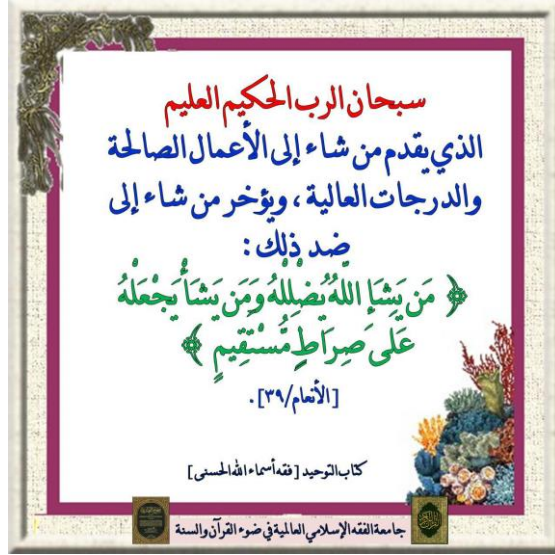 سبحان الرب الحكيم العليم
الذي يقدم من شاء إلى الأعمال الصالحة
والدرجات العالية ، ويؤخر من شاء إلى
ضد ذلك :
﴿ مَن يَشَإِ اللَّهُ يُضْلِلْهُ وَمَن يَشَأْ يَجْعَلْهُ
عَلَى صِرَاطٍ مُّسْتَقِيمٍ ﴾
[الأنعام/٣٩] .
كتاب التوحيد [ فقه أسماء الله الحسنى ]
جامعة الفقه الإسلامي العالمية في ضوء القرآن والسنة